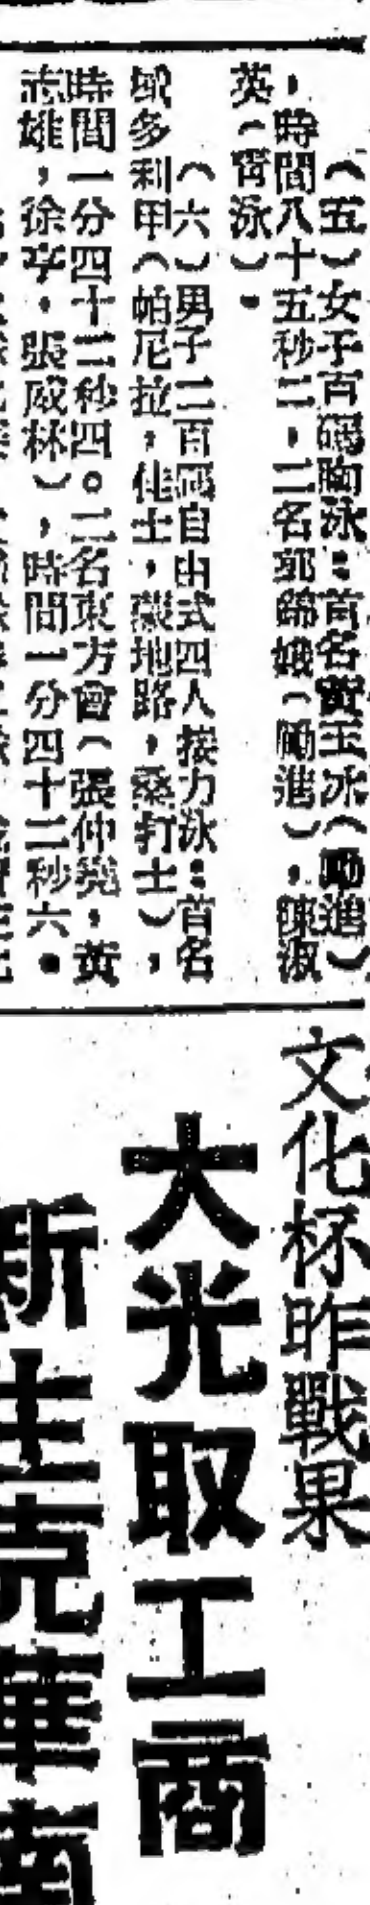 （五）女子百碼胸泳：首名黃玉冰（勵進）
，時間八十五秒二，二名郭錦娥（勵進），陳淑
英（霄泳）。
（六）男子二百碼自由式四人接力泳：首名
域多利甲（帕尼拉，佳士，地路，桑打士），
時間一分四十二秒四。二名東方會（張仲堯，黃
志雄，徐亨，張威林），時間一分四十二秒六。
文化杯昨戰果
大光取工商
新佳克華南